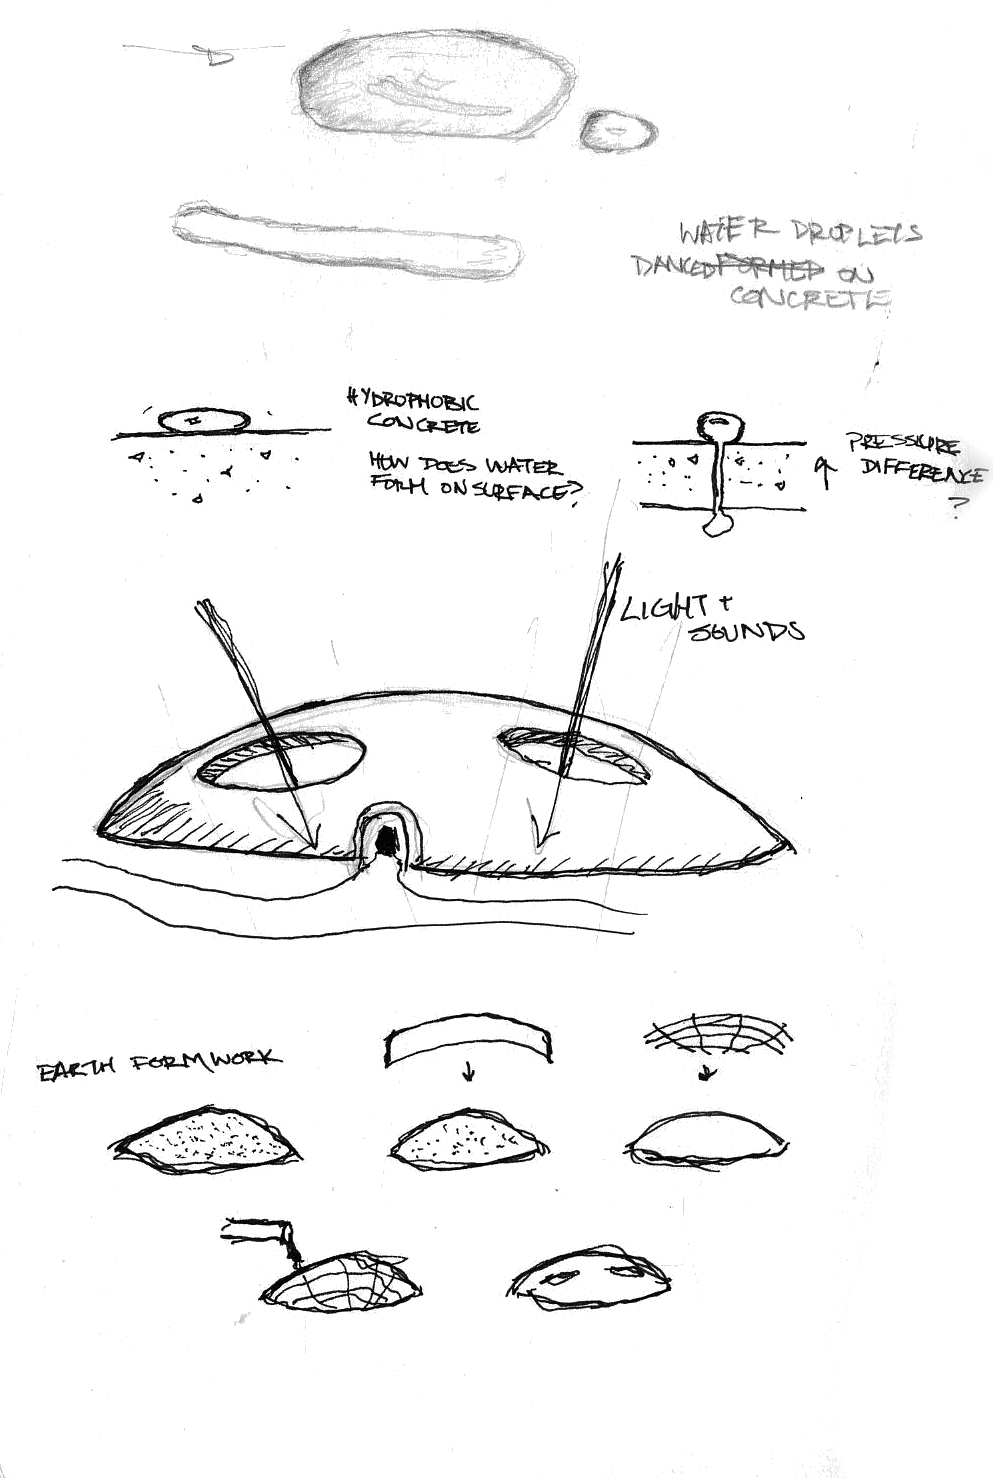 WATER DROPLETS
DANCED FORMED ON
CONCRETE
HYDROPHOBIC
CONCRETE
HOW DOES WATER
FORM ON SURFACE?
PRESSURE
DIFFERENCE
?
LIGHT +
SOUNDS
EARTH FORMWORK